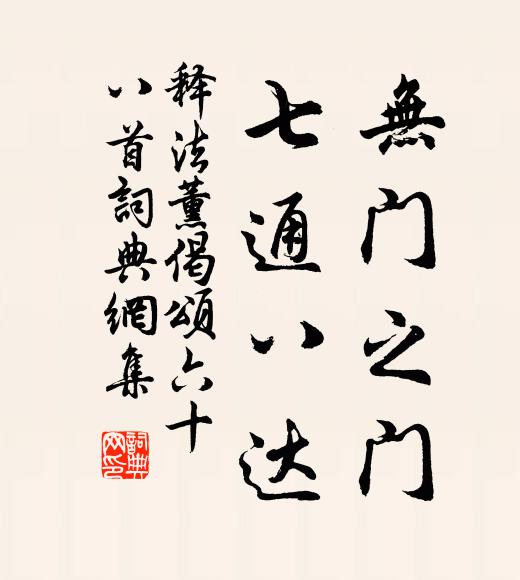 無门之门
七通八达
释法薰偈頌六十
八首詞典網集
詞典网印